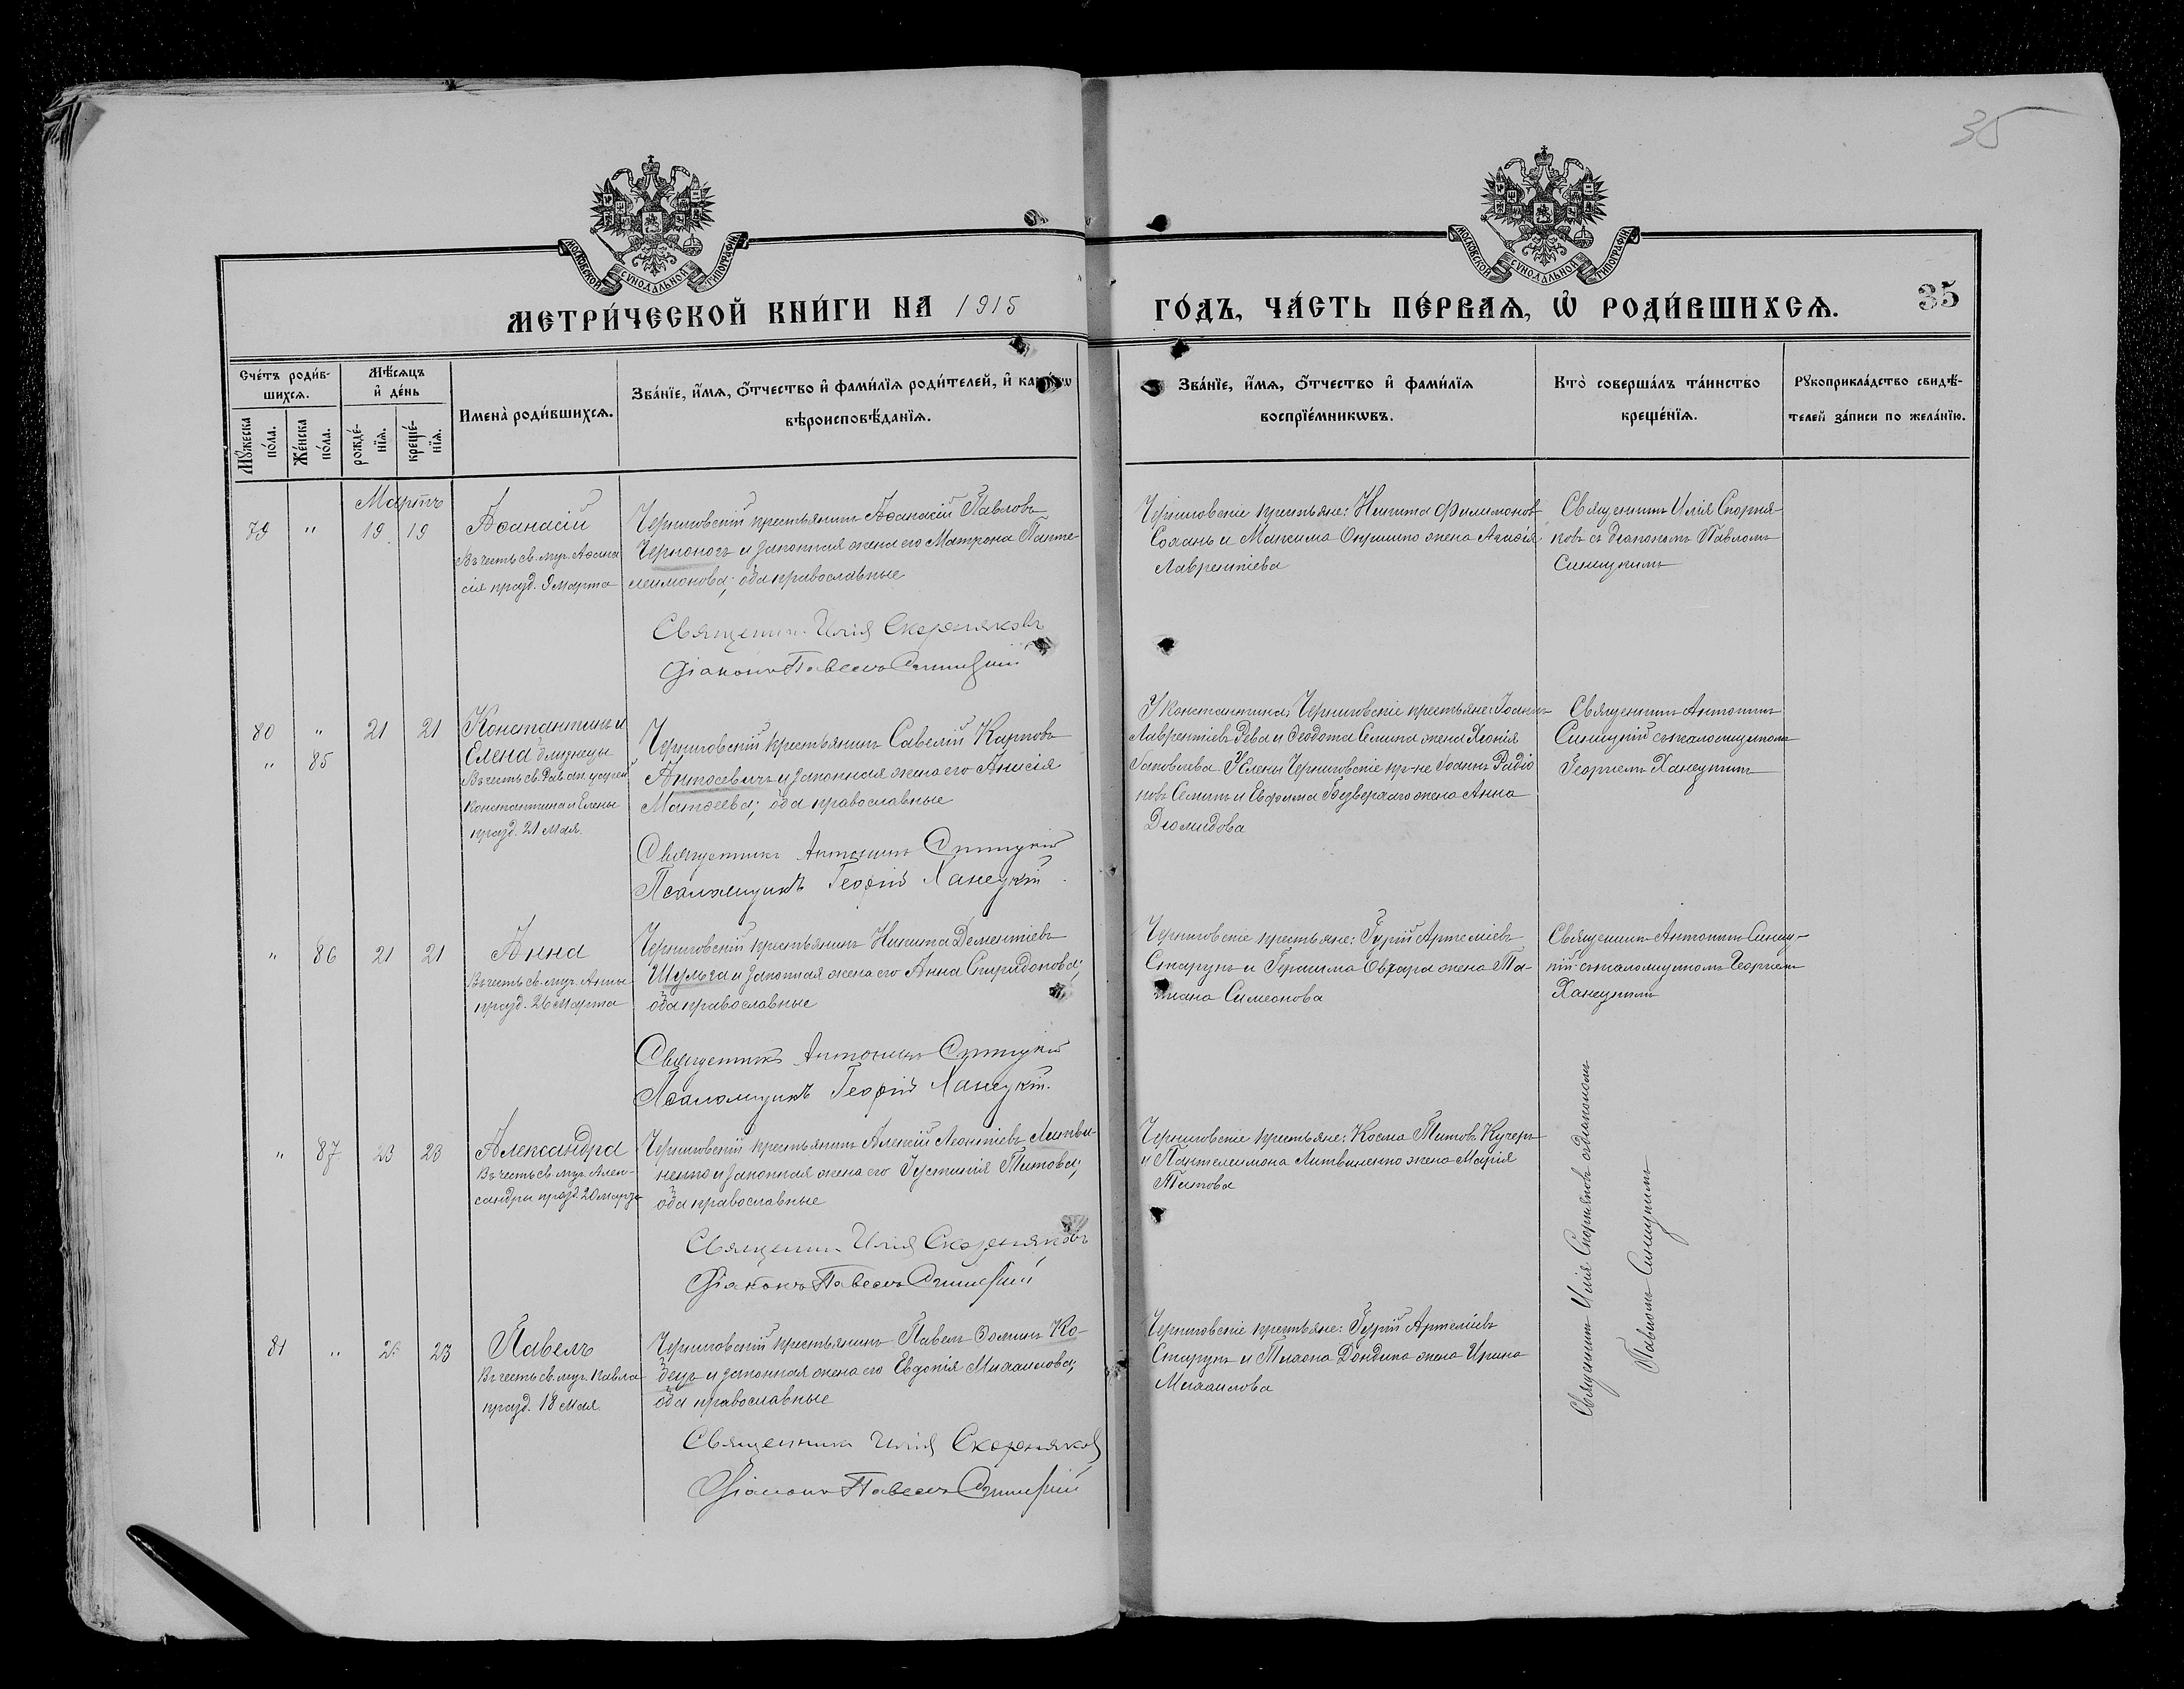 35
МОСКОВСКОЙ СѴНОДАЛЬНОЙ ТИПОГРАФІИ
МОСКОВСКОЙ СѴНОДАЛЬНОЙ ТИПОГРАФІИ
МЕТРИ́ЧЕСКОЙ КНИ́ГИ НА 1915
ГО́ДЪ, ЧА́СТЬ ПЕ́РВАѦ, Ѡ҆ РОДИ́ВШИХСѦ.
35
Сче́тъ роди́в-
шихсѧ.
Мꙋ́жеска
по́ла.
Же́нска
по́ла.
Мѣ́сѧцъ
и҆ де́нь
рожде́-
нїѧ.
креще́-
нїѧ.
Имена̀ роди́вшихсѧ.
Зва́нїе, и҆́мѧ, ѻ҆́тчество и҆ фами́лїѧ роди́телей, и҆
вѣроисповѣ́данїѧ.
Зва́нїе, и҆́мѧ, ѻ҆́тчество и҆ фами́лїѧ
воспрїе́мникѡвъ.
Кто̀ соверша́лъ та́инство
креще́нїѧ.
Рꙋкоприкла́дство свидѣ́-
телей за́писи по жела́нїю.
Мартъ
79 " 19 19
Аѳанасій
Въ честь св. муч. Аѳана
сія празд. 9 Марта
Черниговскій крестьянинъ Аѳанасій Павловъ
Черноногъ и законная жена его Матрона Панте
леимонова; оба православные
Священн. Илія Скорняковъ
Діаконъ Павелъ Синицкій
Черниговскіе крестьяне: Никита Филимонов
и Максима жена Агаѳія
Лаврентіева
Священникъ Илія Скорня
ковъ съ діакономъ Павломъ
Синицкимъ
80 " 21 21
" 85
Константинъ и
Елена близнецы
Въ честь св. Рав. ап. царей
Константина и Елены
празд. 21 Мая.
Черниговскій крестьянинъ Савелій Карповъ
Антосевичъ и законная жена его Анисія
Матѳеева; оба православные
Священникъ Антонинъ Синицкій
Псаломщикъ Георгій Ханецкій.
У Константина: Черниговскіе крестьяне: Іоаннъ
Лаврентіевъ Рева и Ѳеодота жена Хіонія
Іаковлева. У Елены Черниговскіе кр-не Іоаннъ Радіо
новъ и Евфима жена Анна
Діомидова
Священникъ Антонинъ
Синицкій съ псаломщикомъ
Георгіемъ Ханецкимъ
" 86 21 21
Анна
Въ честь св. муч. Анны
празд. 26 Марта
Черниговскій крестьянинъ Никита Дементіевъ
Шульга и законная жена его Анна Спиридонова;
оба православные
Священникъ Антонинъ Синицкій
Псаломщикъ Георгій Ханецкій.
Черниговскіе крестьяне: Гурій Артеміевъ
Старунъ и Герасима Овчара жена Та-
тіана Симеонова
Священникъ Антонинъ Синиц-
кій съ псаломщикомъ Георгіемъ
Ханецкимъ
" 87 23 23
Александра
Въ честь св. муч. Алек-
сандры празд. 20 Марта
Черниговскій крестьянинъ Алексій Леонтіевъ Литви-
ненко и законная жена его Іустинія Титова;
оба православные
Священн. Илія Скорняковъ
Діаконъ Павелъ Синицкій
Черниговскіе крестьяне: Косма Титовъ Кучеръ
и Пантелеимона Литвиненко жена Марія
Титова
Священникъ Илія Скорняковъ съ діакономъ
Павломъ Синицкимъ
81 " 23 23
Павелъ
Въ честь св. муч. Павла
празд. 18 Мая.
Черниговскій крестьянинъ Павелъ Ѳоминъ Ко-
и законная жена его Евдокія Михаилова;
оба православные
Священникъ Илія Скорняков
Діаконъ Павелъ Синицкій
Черниговскіе крестьяне: Гурій Артеміевъ
Старунъ и жена Ирина
Михаилова